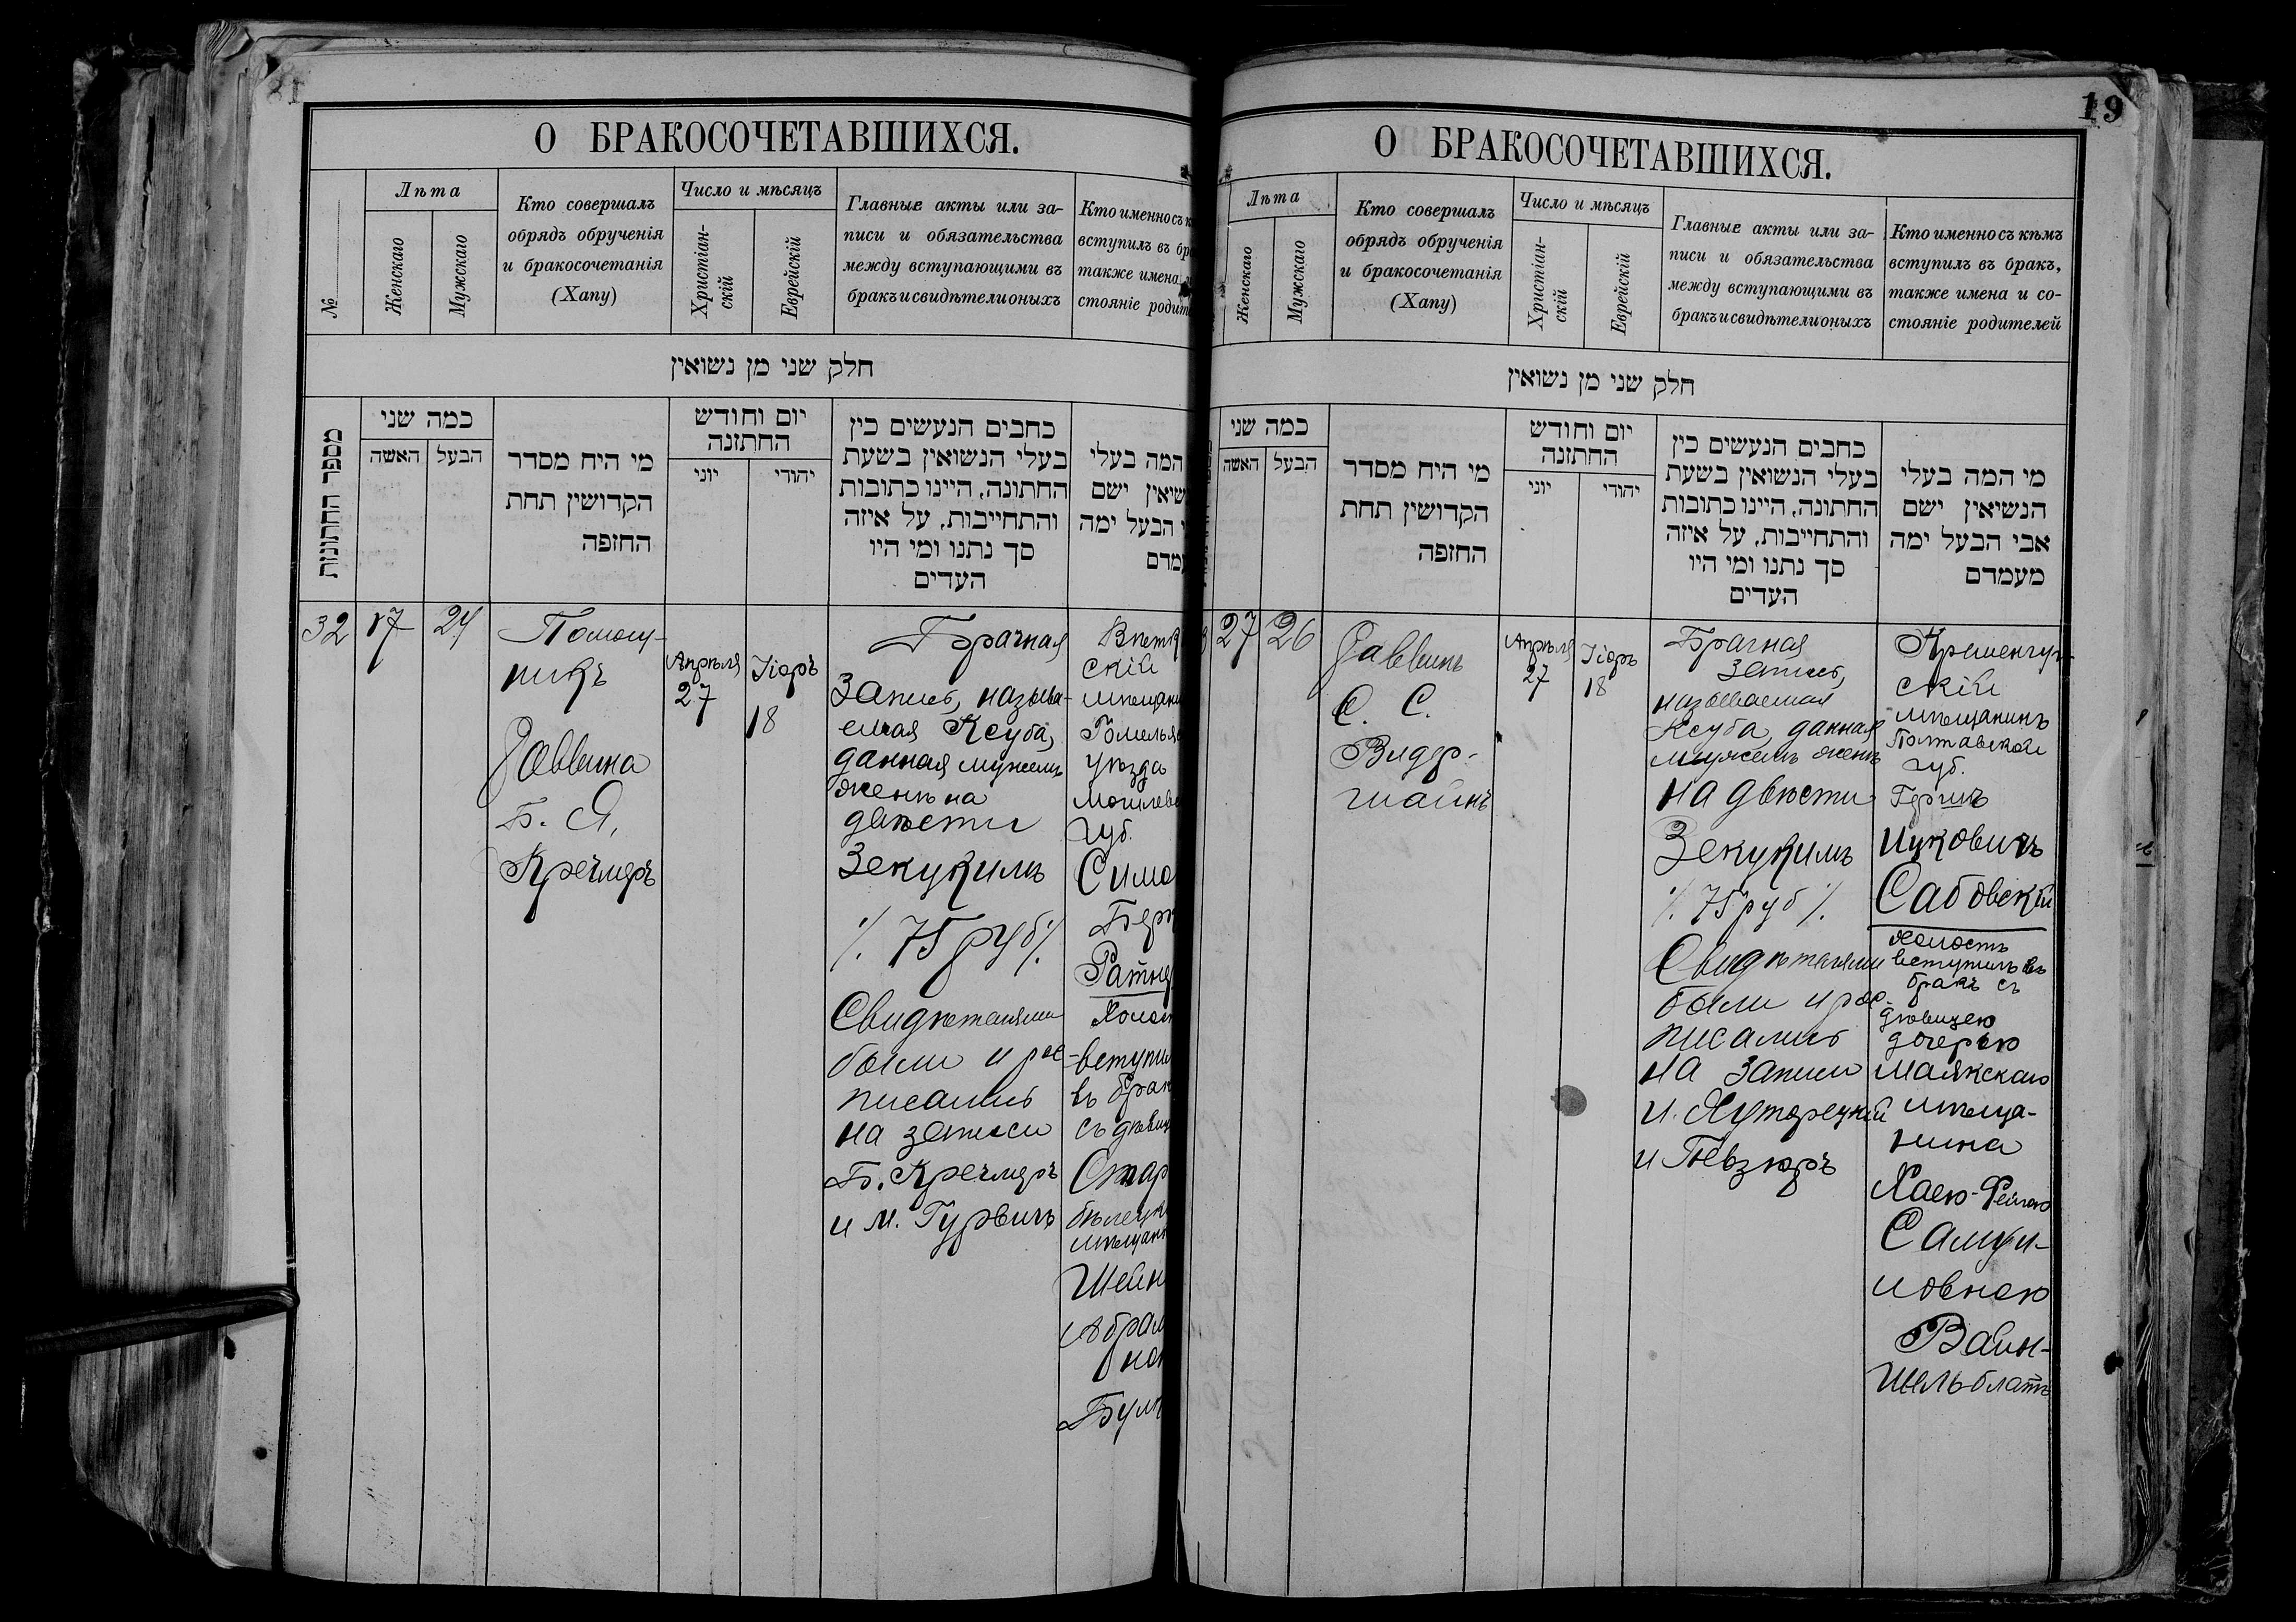 О БРАКОСОЧЕТАВШИХСЯ.
№
Лѣта
Женскаго
Мужскаго
Кто совершалъ
обрядъ обрученія
и бракосочетанія
(Хапу)
Число и мѣсяцъ
Христіан-
скій
Еврейскій
Главные акты или за-
писи и обязательства
между вступающими въ
бракъ и свидѣтели оныхъ
Кто именно съ к
вступилъ въ бра
также имена
стояніе родит
חלק שני מן נשואין
מספר החתונות
כמה שני
האשה
הבעל
מי היח מסדר
הקדושין תחת
החופה
יום וחודש
החתונה
יוני
יהודי
כחבים הנעשים כין
בעלי הנשואין בשעת
החתונה, היינו כתובות
והתחייבות, על איזה
סך נתנו ומי היו
העדים
המה בעלי
שיאין ישם
י הבעל ימה
עמדם
32
17
24
Помощ-
никъ
Раввина
Б. Я.
Кречмеръ
Апрѣля
27
Іюръ
18
Брачная
Запись, называ-
емая Ксуба,
данная мужемъ
женѣ на
двѣсти
Зекукимъ
·/. 75 руб /.
Свидѣтелями
были и рос
писались
на записи
Б. Кречмеръ
и М. Гурвичъ
скій
мѣщани
Гомельск
уѣзда
Могилевс
губ.
Симо
Берк
Ратне
Холост
вступил
въ брак
съ дѣвиц
Стар
бѣлецк
мѣщанк
Шейн
Абрам
ною
19
О БРАКОСОЧЕТАВШИХСЯ.
Лѣта
Женскаго
Мужскаго
Кто совершалъ
обрядъ обрученія
и бракосочетанія
(Хапу)
Число и мѣсяцъ
Христіан-
скій
Еврейскій
Главные акты или за-
писи и обязательства
между вступающими въ
бракъ и свидѣтели оныхъ
Кто именно съ кѣмъ
вступилъ въ бракъ,
также имена и со-
стояніе родителей
חלק שני מן נשואין
כמה שני
האשה
הבעל
מי היח מסדר
הקדושין תחת
החופה
יום וחודש
החתונה
יוני
יהודי
כחבים הנעשים כין
בעלי הנשואין בשעת
החתונה, היינו כתובות
והתחייבות, על איזה
סך נתנו ומי היו
העדים
מי המה בעלי
הנשיאין ישם
אבי הבעל ימה
מעמדם
27
26
Раввинъ
С. С.
Видер-
гааинъ
Апрѣля
27
Іюръ
18
Брачная
запись,
называемая
Ксуба, данная
мужемъ женѣ
на двѣсти
Зекукимъ
·/. 75 руб /.
Свидѣтелями
были и рос-
писались
на записи
и Певзюръ
Кременчуг-
скій
мѣщанинъ
Полтавской
губ.
Гершъ
Ицковичъ
Сабовскій
холостъ
вступилъ въ
бракъ съ
дѣвицею
дочерью
Маякскаго
мѣща-
нина
Хаею-Фейгою
Самуи-
ловною
Вайн-
шельблатъ